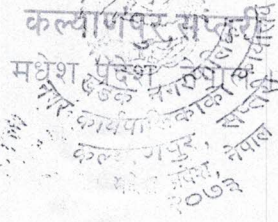 कल्याणपुर, सप्तरी
मधेश प्रदेश नेपाल
खडक नगरपालिका
नगर कार्यपालिकाको कार्यालय
कल्याणपुर, सप्तरी
प्रदेश, नेपाल
२०७३